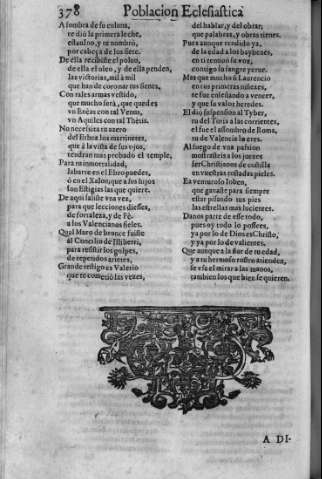 378 Poblacion Eclesiastica
A sombra de su coluna,
te dió la primera leche,
el saluo, y te nombró,
por cabeça de los siete.
De ella recibiste el poluo,
de ella el oleo, y de ella penden,
las victorias, mil à mil
que han de coronar tus sienes.
Con tales armas vestido,
que mucho serà, que quedes
vn Eneas con tal Venus,
vn Aquiles con tal Thetis.
No necesita tu azero
del Ethna los martinetes,
que à la vista de sus ojos,
tendran mas probado el temple,
Para tu inmortalidad,
labarte en el Ebro puedes,
ò en el Xalon, que à sus hijos
son Estigies las que quiere.
De aqui saliste vna vez,
para que lecciones diesses,
de fortaleza, y de Fè,
a los Valencianos fieles.
Qual Muro de bronce fuiste
al Concilio de Illiberi,
para resistir los golpes,
de repetidos arietes,
Grande testigo es Valerio
que te cometió las vezes,
del hablar, y del obrar,
que palabras, y obras tienes.
Pues aunque rendido ya,
de la edad a los bayuenes,
en ti remozó su voz,
contigo su sangre yerue.
Mas que mucho si Laurencio
en tus primeras niñezes,
te fue enseñando a vencer,
y que su valor heredes.
El dió suspension al Tyber,
tu del Turia a las corrientes,
el fue el assombro de Roma,
tu de Valencia lo eres.
Al fuego de vna passion
mostrasteis a los juezes
ser Christianos de cuchilla
en vuestras tostadas pieles.
Ea venturoso joben,
que ganaste para siempre
estar pisando tus pies
las estrellas mas lucientes.
Danos parte de esse todo,
pues oy todo lo posees,
ya por lo de Dios es Christo,
y ya por lo de valientes.
Que aunque a la flor de tu edad,
y a tu hermoso rostro atienden,
se vse el mirar a las manos,
tambien los que bien se quieren.
A DI-